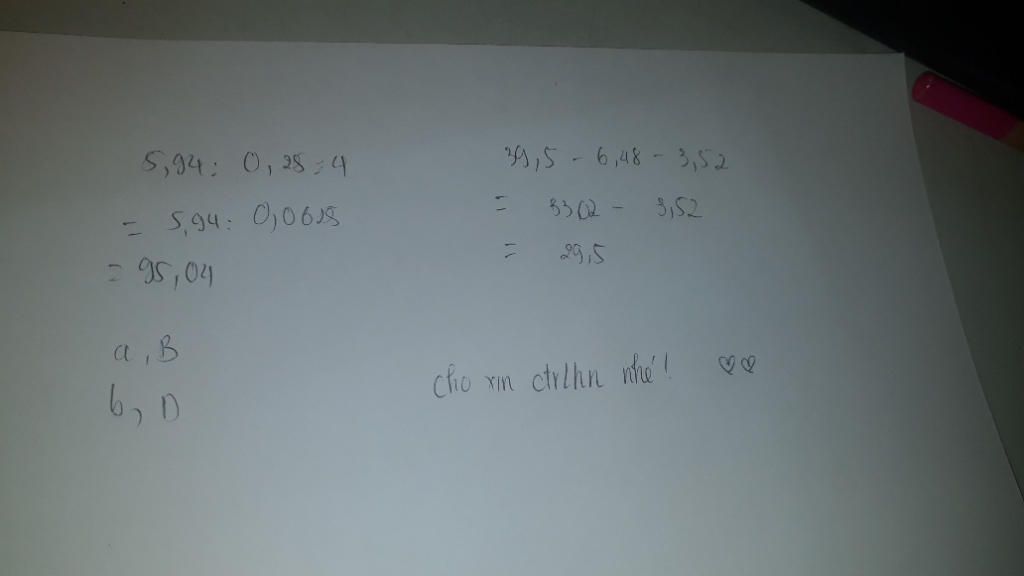 5,94 : 0,25 : 4
= 5,94 : 0,0625
= 95,04
a, B
b, D
39,5 - 6,48 - 3,52
= 3302 - 3,52
= 29,5
cho xin ctrlhn nhé !